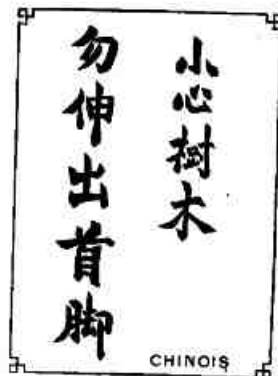 小心樹木
勿伸出首脚
CHINOIS